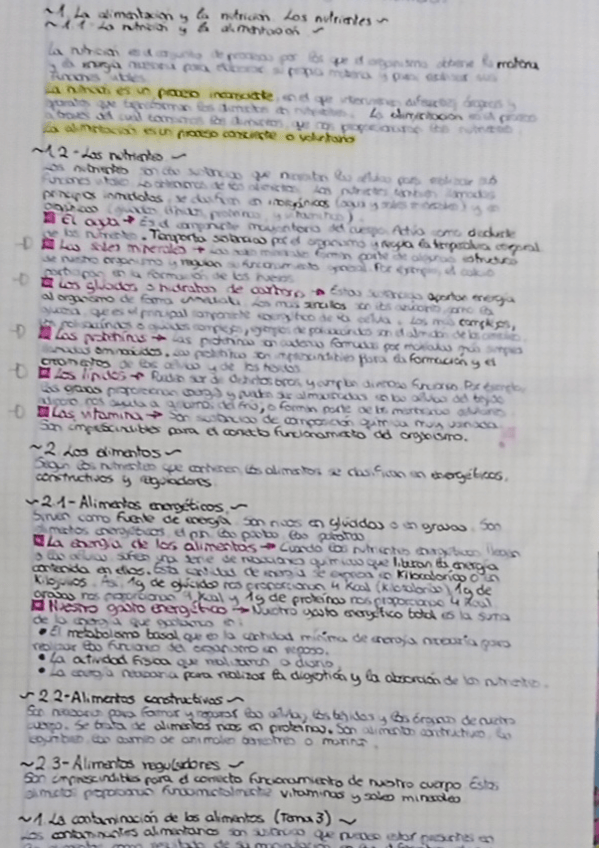 ~1. La alimentación y la nutrición. Los nutrientes ~
~1.1-La nutrición y la alimentación ~
La nutrición es el conjunto de procesos por los que el organismo obtiene la materia
y la energía necesaria para elaborar su propia materia y para realizar sus
funciones vitales.
La nutrición es un proceso inconsciente, en el que intervienen diferentes órganos y
aparatos que transforman los alimentos en nutrientes. La alimentación es el proceso
a través del cual tomamos los alimentos, que nos proporcionan los nutrientes.
La alimentación es un proceso consciente o voluntario
~1.2-Los nutrientes ~
Los nutrientes son las sustancias que necesitan las células para realizar sus
funciones vitales. Los obtenemos de los alimentos. Los nutrientes también llamados
principios inmediatos, se clasifican en inorgánicos (agua y sales minerales) y en
orgánicos (glúcidos, lípidos, proteínas, y vitaminas).
El agua → Es el componente mayoritario del cuerpo. Actúa como disolvente
de los nutrientes. Transporta sustancias por el organismo y regula la temperatura corporal.
Las sales minerales → Las sales minerales forman parte de algunas estructuras
de nuestro organismo y regulan su funcionamiento general. Por ejemplo, el calcio
participan en la formación de los huesos.
Los glúcidos o hidratos de carbono → Estas sustancias aportan energía
al organismo de forma inmediata. Los más sencillos son los azúcares como la
glucosa, que es el principal componente energético de la célula. Los más complejos,
Las proteínas → Las proteínas son cadenas formadas por moléculas más simples
llamadas aminoácidos. Las proteínas son imprescindibles para la formación y el
crecimiento de las células y de los tejidos
Los lípidos → Pueden ser de distintos tipos, y cumplen diversas funciones. Por ejemplo,
las grasas proporcionan energía y pueden ser almacenadas en las células del tejido
adiposo nos ayuda a aislarnos del frío, o forman parte de las membranas celulares
Las vitamina → Son sustancias de composición química muy variada.
Son imprescindibles para el correcto funcionamiento del organismo.
~2 Los alimentos ~
Según los nutrientes que contienen, los alimentos se clasifican en energéticos,
constructivos y reguladores.
~2.1-Alimentos energéticos. ~
Sirven como fuente de energía. Son ricos en glúcidos o en grasas. Son
alimentos energéticos, el pan, las pastas, las patatas
La energía de los alimentos → Cuando los nutrientes energéticos llegan
a las células sufren una serie de reacciones químicas que liberan la energía
contenida en ellos. Esta cantidad de energía se expresa en Kilocalorías o en
Kilojulios. Así, 1g de glúcidos nos proporcionan 4 Kcal (Kilocalorías) 1g de
grasas nos proporcionan 9 Kcal y 1g de proteínas nos proporcionan 4 Kcal
Nuestro gasto energético → Nuestro gasto energético total es la suma
de la energía que gastamos en:
• El metabolismo basal que es la cantidad mínima de energía necesaria para
realizar las funciones del organismo en reposo.
• La actividad física que realizamos a diario
• La energía necesaria para realizar la digestión y la absorción de los nutrientes.
~2.2-Alimentos constructivos ~
Son necesarios para formar y reparar las células, los tejidos y los órganos de nuestro
cuerpo. Se trata de alimentos ricos en proteínas. Son alimentos constructivos, las
legumbres, las carnes de animales terrestres o marinos.
~2.3-Alimentos reguladores ~
Son imprescindibles para el correcto funcionamiento de nuestro cuerpo. Estos
alimentos proporcionan fundamentalmente vitaminas y sales minerales
~1. La contaminación de los alimentos (Tema 3) ~
Los contaminantes alimentarios son sustancias que pueden estar presentes en